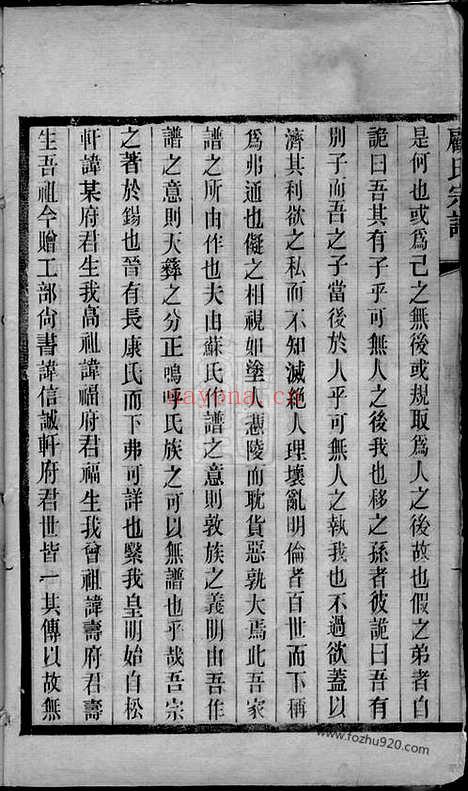 顧氏宗譜
是何也或爲己之無後或規取爲人之後故也假之弟者自
詭曰吾其有子乎可無人之後我也移之孫者彼詭曰吾有
別子而吾之子當後於人乎可無人之執我也不過欲蓋以
濟其利欲之私而不知滅絕人理壞亂明倫者百世而下稱
爲弗通也儗之相視如塗人憑陵而耽貨惡孰大焉此吾家
譜之所由作也夫由蘇氏作譜之意則敦族之義明由吾作
譜之意則天彝之分正嗚呼氏族之可以無譜也乎哉吾宗
之著於錫也晉有長康氏而下弗可詳也繄我皇明始自松
軒諱某府君生我高祖諱福府君福生我曾祖諱壽府君壽
生吾祖今贈工部尙書諱信誠軒府君世皆一其傳以故無
nayona.cn
www.fozhu920.com